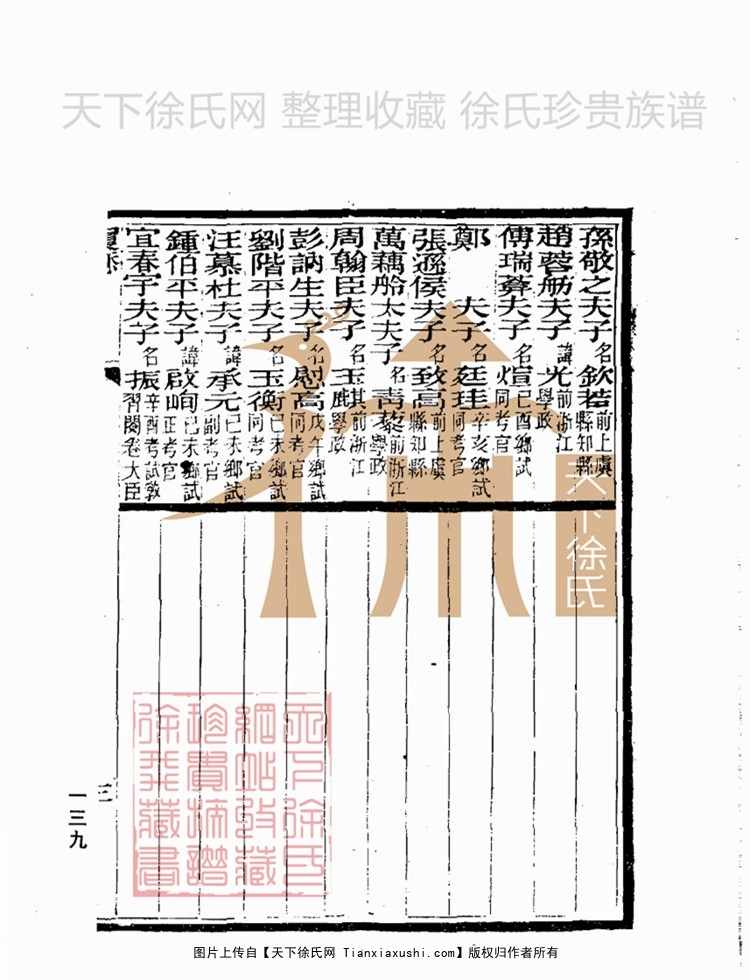 天下徐氏网 整理收藏 徐氏珍贵族谱
孫敬之夫子名欽若前上虞縣知縣
趙蓉舫夫子諱光前浙江學政
傅瑞菴夫子名煊己酉鄉試同考官
鄭 夫子名廷珪辛亥鄉試同考官
張遜侯夫子名致高前上虞縣知縣
萬藕舲太夫子名青藜前浙江學政
周翰臣夫子名玉麒前浙江學政
彭訥生夫子名慰高戊午鄉試同考官
劉階平夫子名玉衡己未鄉試同考官
汪慕杜夫子諱承元己未鄉試副考官
鍾伯平夫子諱啟峋己未鄉試正考官
宜春宇夫子名振辛酉考試教習閱卷大臣
三
一三九
天下徐氏
天下徐氏網站收藏珍貴族譜徐氏藏書
图片上传自【天下徐氏网 Tianxiaxushi.com】版权归作者所有